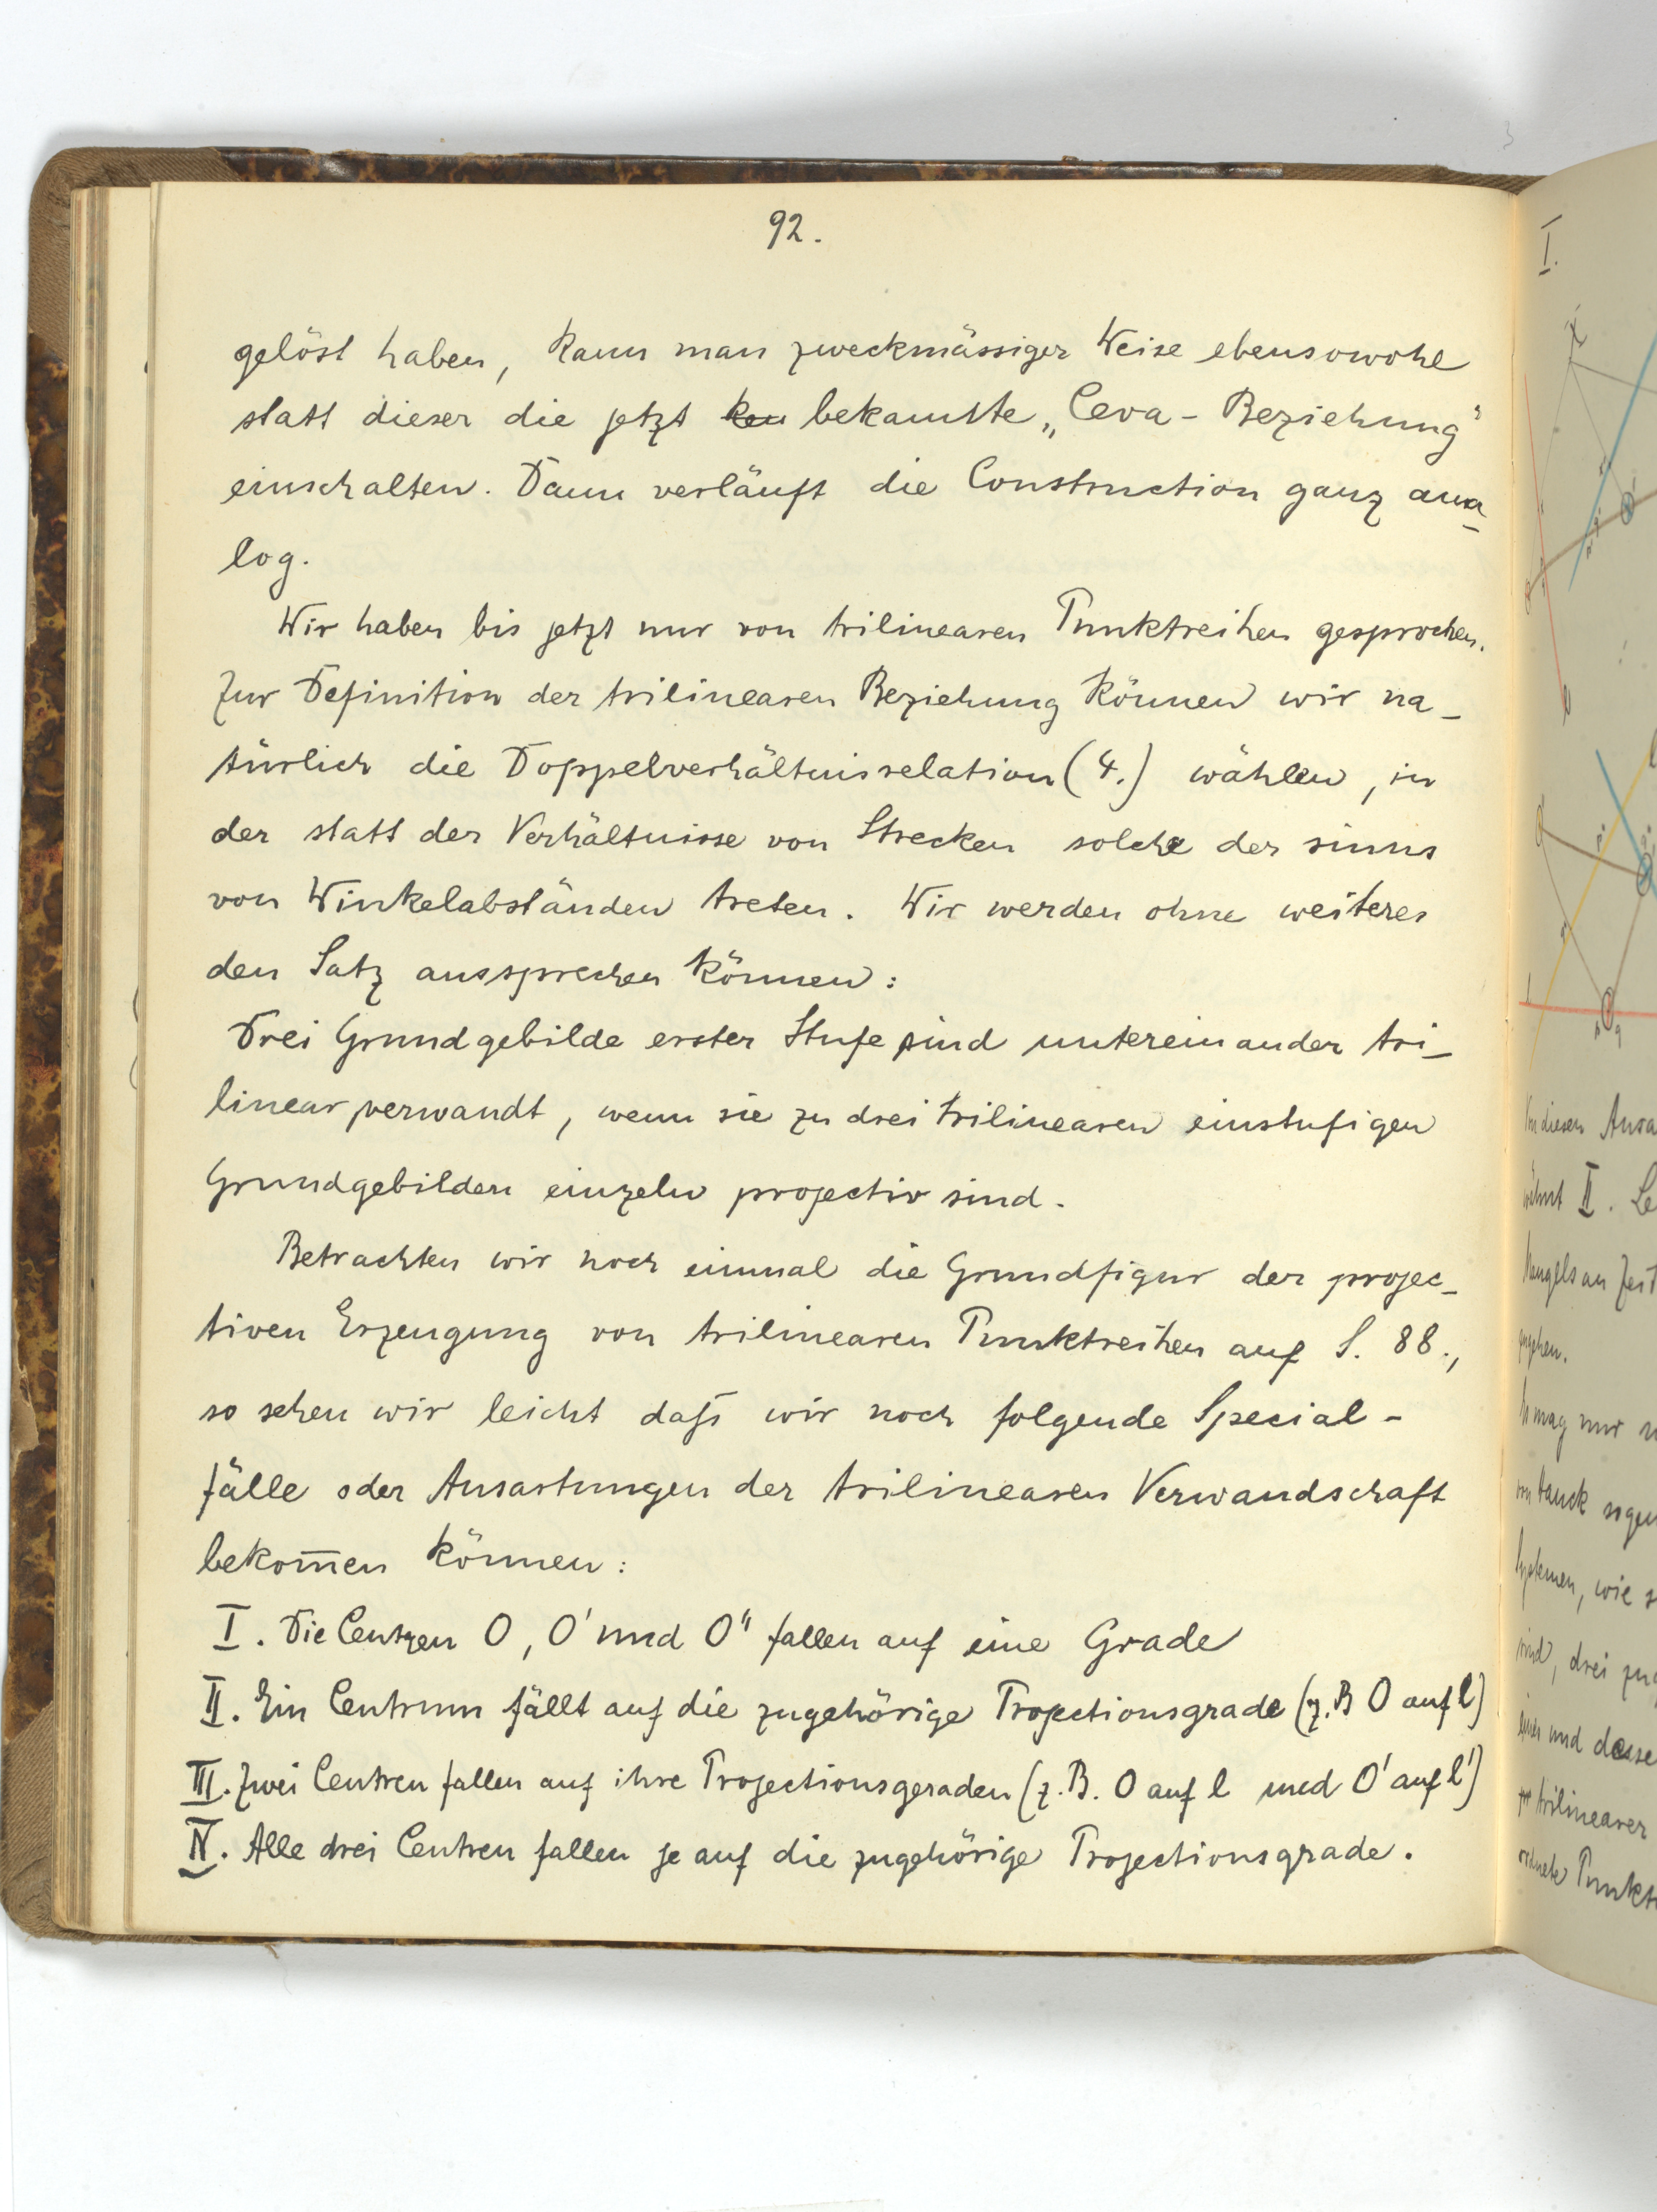 92.
gelöst haben, kann man zweckmässiger Weise ebensowohl
statt dieser die jetzt ken bekannte „Ceva-Beziehung“
einschalten. Dann verläuft die Construction ganz ana-
log.
Wir haben bis jetzt nur von trilinearen Punktreihen gesprochen.
Zur Definition der trilinearen Beziehung können wir na-
türlich die Doppelverhältnisrelation (4.) wählen, in
der statt der Verhältnisse von Strecken solche der sinus
von Winkelabständen treten. Wir werden ohne weiteres
den Satz aussprechen können:
Drei Grundgebilde erster Stufe sind untereinander tri-
linear verwandt, wenn sie zu drei trilinearen einstufigen
Grundgebilden einzeln projectiv sind.
Betrachten wir noch einmal die Grundfigur der projec-
tiven Erzeugung von trilinearen Punktreihen auf S. 88.,
so sehen wir leicht daſs wir noch folgende Special-
fälle oder Ausartungen der trilinearen Verwandschaft
bekom̅en können:
I. Die Centren O, O' und O'' fallen auf eine Grade
II. Ein Centrum fällt auf die zugehörige Projectionsgrade (z. B O auf l)
III. Zwei Centren fallen auf ihre Projectionsgeraden (z. B. O auf l und O' auf l')
IV. Alle drei Centren fallen je auf die zugehörige Projectionsgrade.
I.
diesen Ausa
II. Le
gehen.
mag nur
Hauck sogen
Systemen, wie s
sind, drei zug
und desse
trilinearer
ordnete Punkt